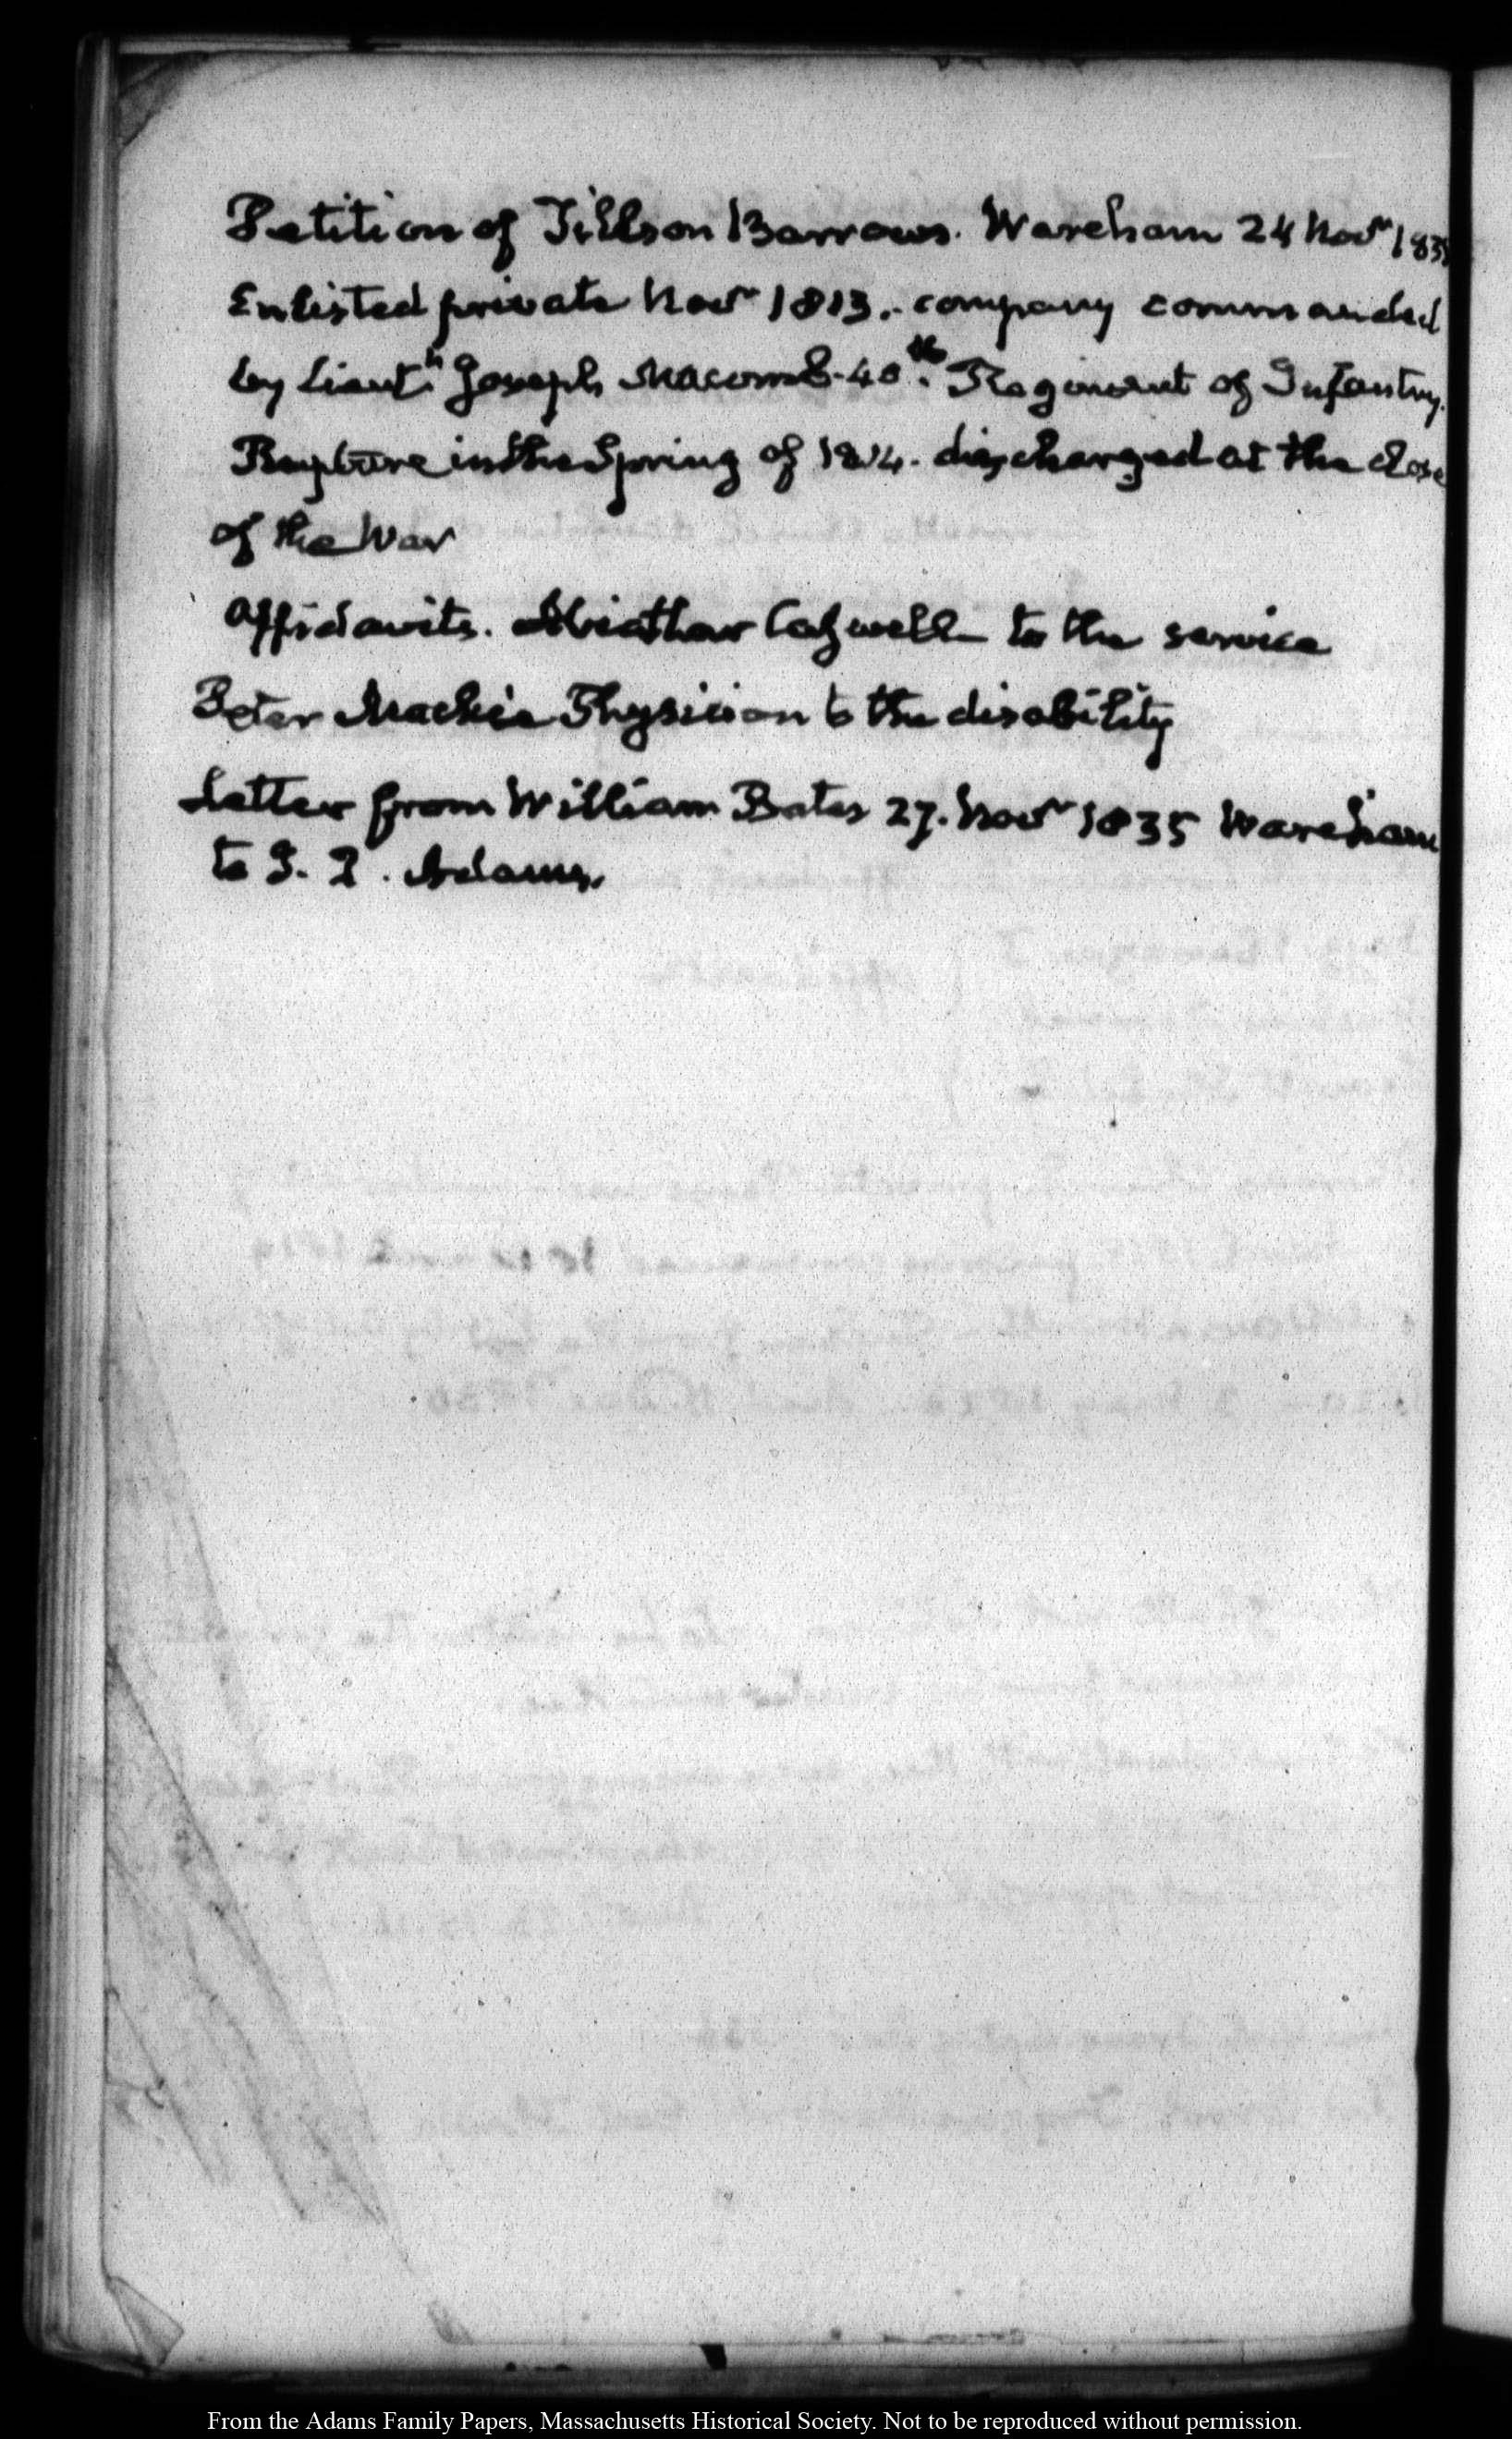 Petition of Tillson Barrows. Wareham 24 Novr 1835
Enlisted private Novr 1813. company commanded
by Lieutt Joseph Macomb 40th. Regiment of Infantry.
Rupture in the Spring of 1814. discharged at the close
of the War
Affidavits. Abiathar to the service
Peter Mackie Physician to the disability
Letter from William Bates 27. Novr 1835 Wareham
to J. Q. Adams.
From the Adams Family Papers, Massachusetts Historical Society. Not to be reproduced without permission.